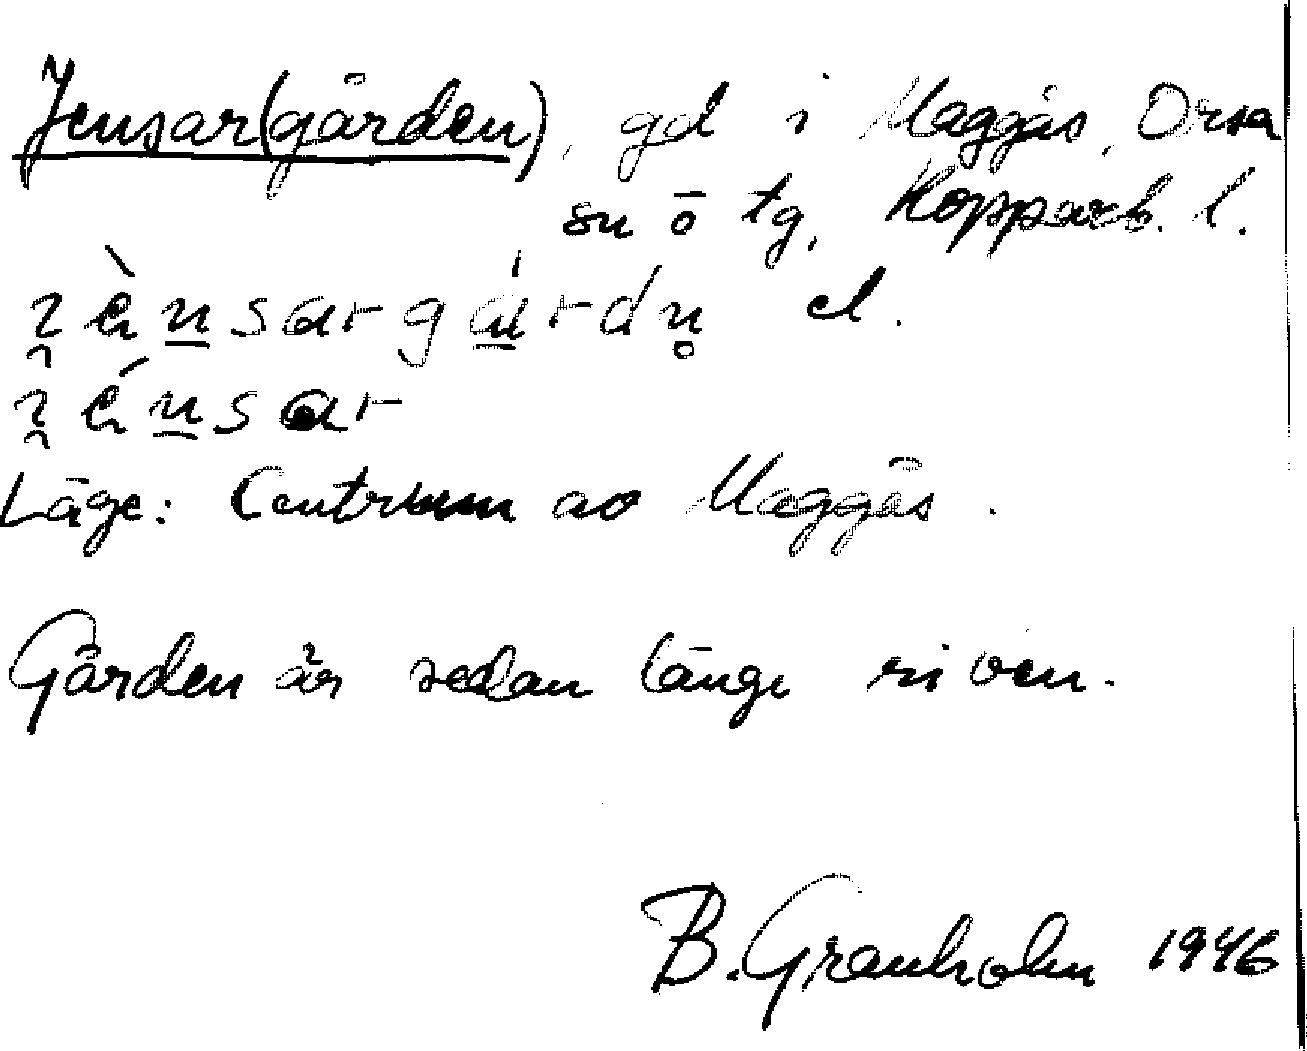 Jensar(gården), gd i Maggås, Orsa
sn ō tg, Kopparb. l.
el.
Läge: Centrum av Maggås.
Gården är sedan länge riven.
B. Granholm 1946